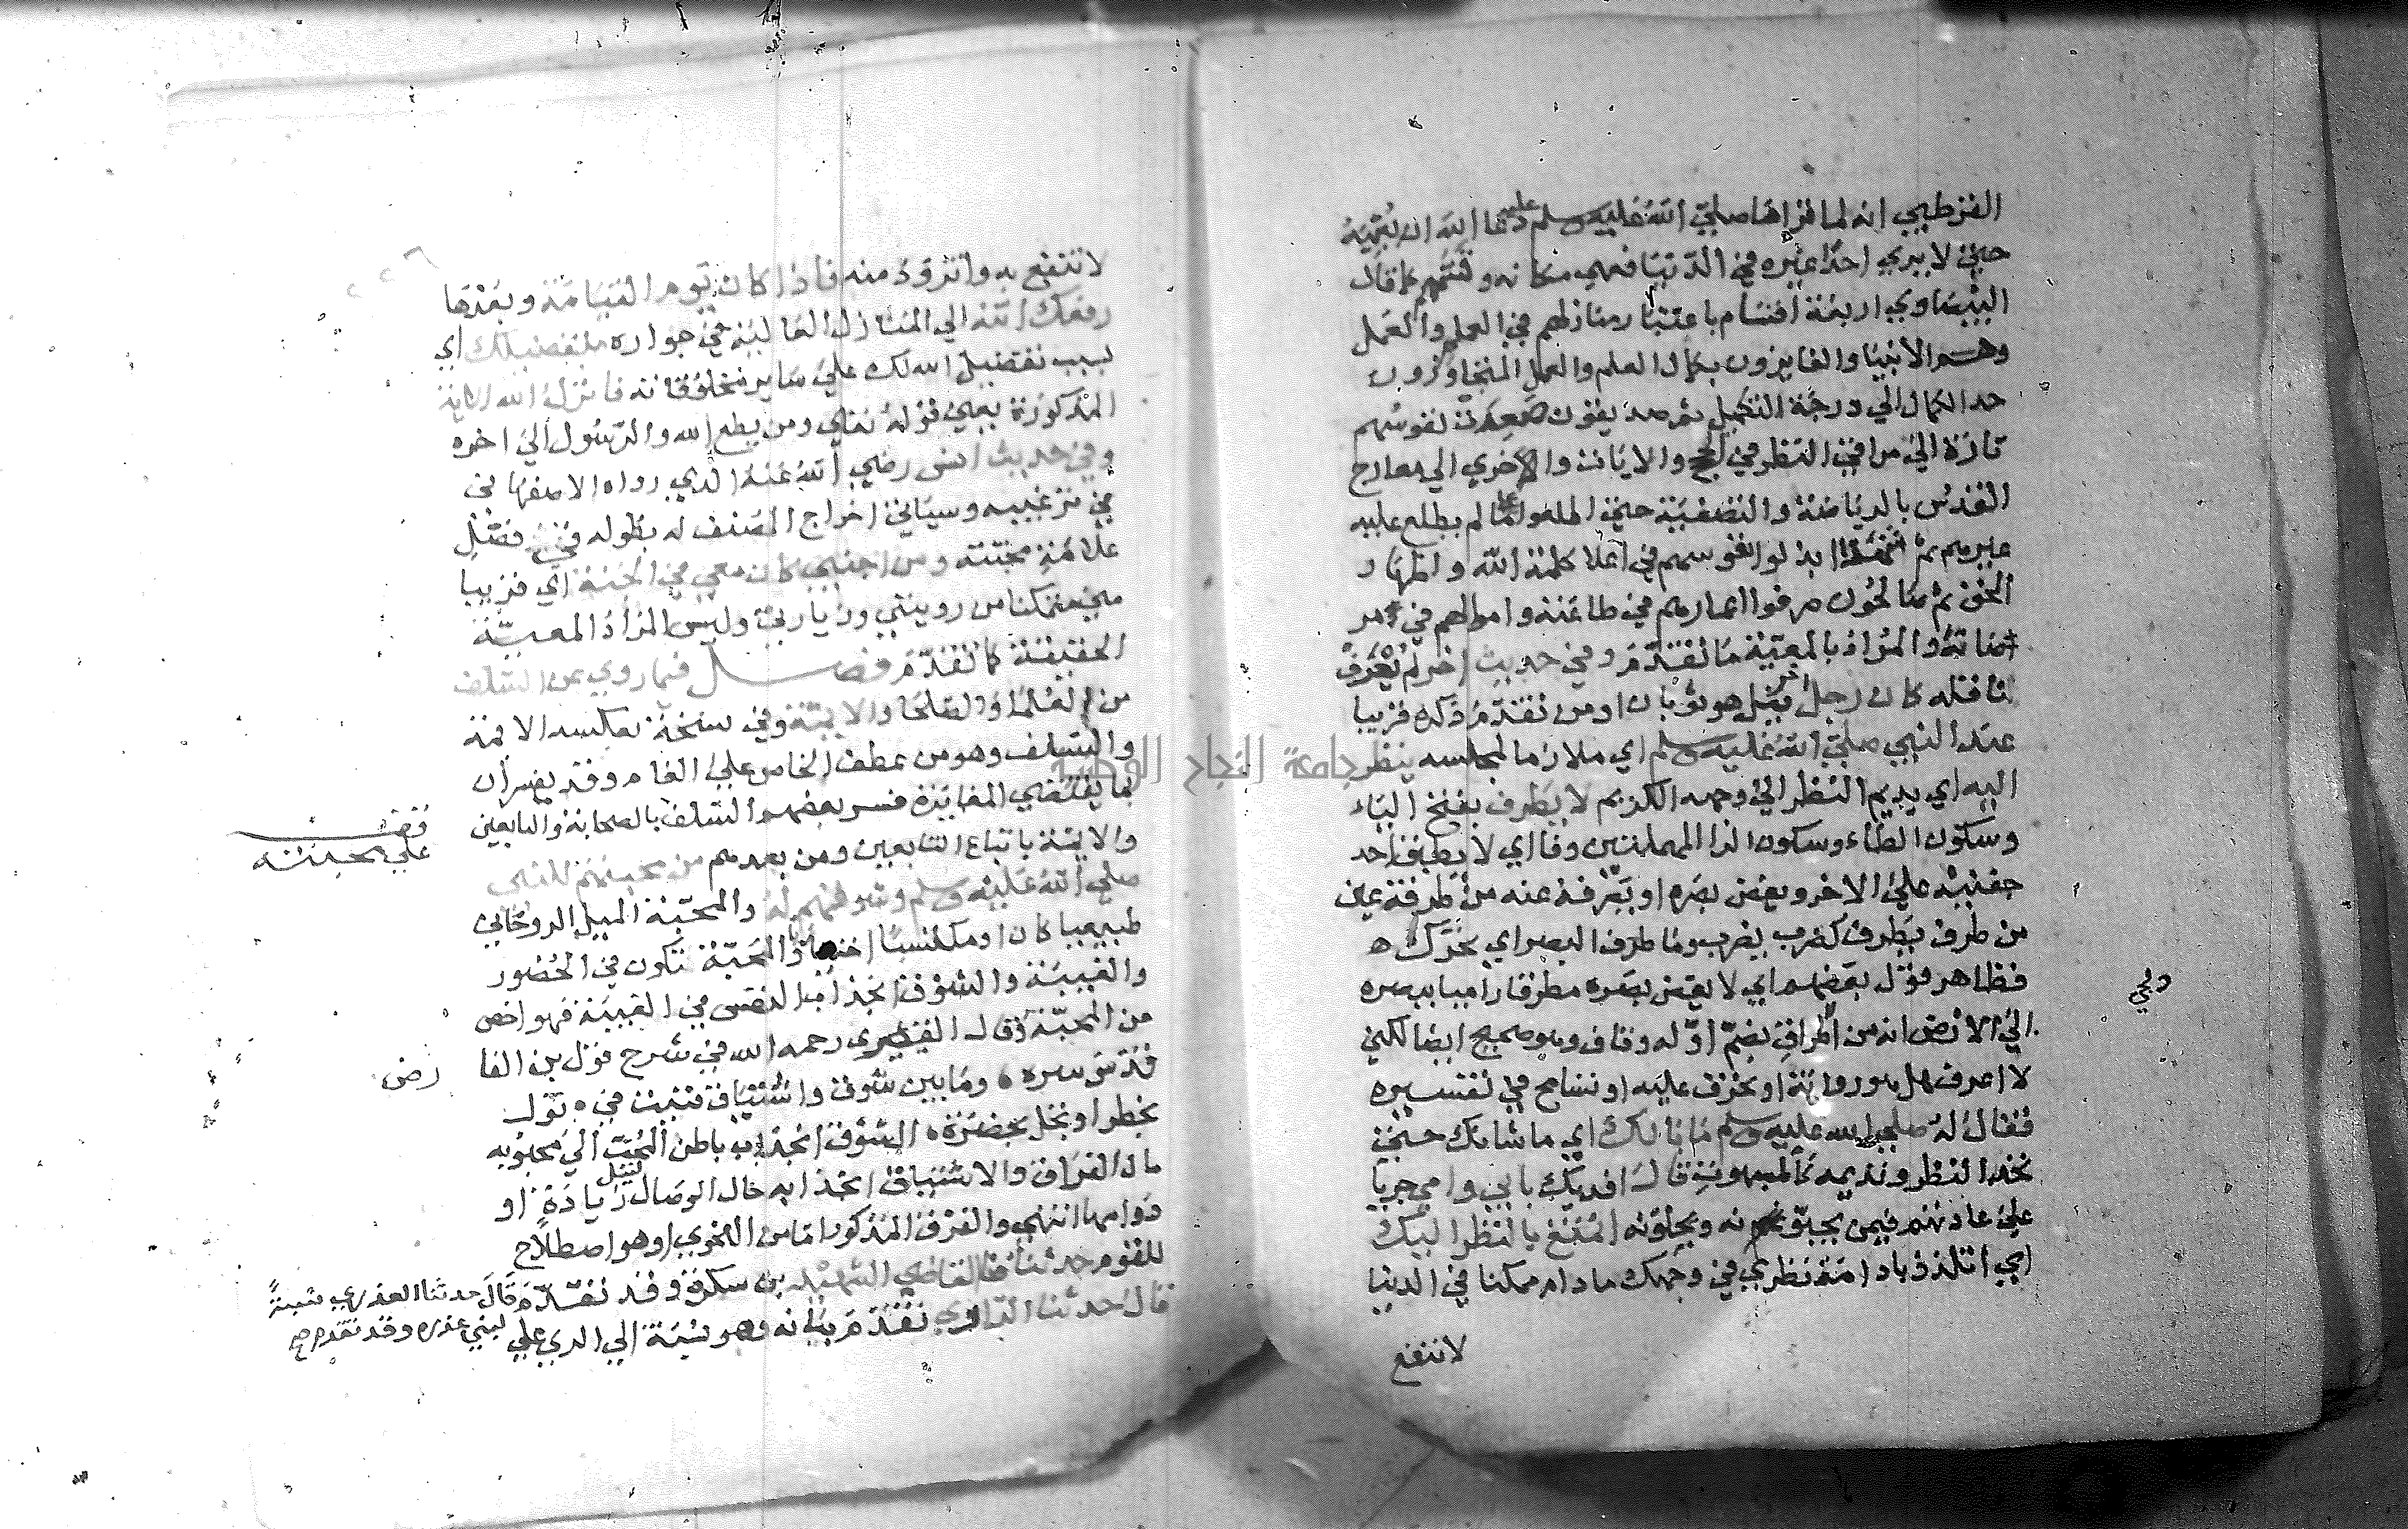 القرطبي انه لما قراها صلي الله عليه وسلم دعا الله ان يميته
حتي لا يري احدا غيره في الدنيا فعمي مكانه وقسمهم كما قال
البيضاوي اربعة اقسام باعتبار منازلهم في العلم والعمل
وهم الانبيا والفايزون بكمال العلم والعمل المتجاوزون
حد الكمال الي درجة التكميل ثم صديقون صعدت نفوسهم
تارة الي مراقي النظر في الحجج والايات والاخري الي معارج
القدس بالرياضة والتصفية حتي اطلعوا علي ما لم يطلع عليه
غيرهم ثم شهدا بذلوا نفوسهم في اعلا كلمة الله واظهار
الحق ثم صالحون صرفوا اعمارهم في طاعته واموالهم في
مرضاته والمراد بالمعية ما تقدم وفي حديث اخر لم يعرف
ناقله كان رجل قيل هو ثوبان او من تقدم ذكره قريبا
عند النبي صلي الله عليه وسلم اي ملازما لمجلسه ينظر
اليه اي يديم النظر الي وجهه الكريم لا يطرف بفتح الياء
وسكون الطاء وسكون الرا المهملتين وفا اي لا يطبق احد
جفنيه علي الاخر ويغض بصره او يصرفه عنه من طرفة عين
من طرف يطرف كضرب يضرب وما طرف البصر اي تحرك ه
فظاهر قول بعضهم اي لا يغض بصره مطرقا راميا ببصره
الي الارض انه من اطراق بضم اوله وقاف وهو صحيح ايضا لكني
لا اعرف هل هو رواية او تحرف عليه او تسامح في تفسيره
فقال له صلي الله عليه وسلم ما بالك اي ما شانك حتي
تحد النظر وتديمه كالمبهوت قال افديك بابي وامي جريا
علي عادتهم فيمن يحبونه ويجلونه اتمتع بالنظر اليك
اي اتلذذ بادامة نظري في وجهك ما دام ممكنا في الدنيا
لانتفع
لانتفع به واتزود منه فاذا كان يوم القيامة وبعدها
رفعك الله الي المنازل العالية في جواره بتفضيلك اي
بسبب تفضيل الله لك علي ساير مخلوقاته فانزل الله الاية
المذكورة يعني قوله تعالي ومن يطع الله والرسول الي اخره
وفي حديث انس رضي الله عنه الذي رواه الاصفهاني
في ترغيبه وسياتي اخراج المصنف له بطوله في فصل
علامة محبته ومن احبني كان معي في الجنة اي قريبا
مني متمكنا من رويتي وزيارتي وليس المراد المعية
الحقيقية كما تقدم فصل فيما روي عن السلف
من العلما والصلحا والايمة وفي نسخة بعكسه الايمة
والسلف وهو من عطف الخاص علي العام وقد يفسران
بما يقتضي المغايرة فسر بعضهم السلف بالصحابة والتابعين
والايمة باتباع التابعين ومن بعدهم من محبتهم للنبي
صلي الله عليه وسلم وشوقهم له والمحبة الميل الروحاني
طبيعيا كان او مكتسبا والمحبة تكون في الحضور
والغيبة والشوق انجذاب النفس في الغيبة فهو اخص
من المحبة وقال القيصري رحمه الله في شرح قول بن الفا رض
قدس سره ه وما بين شوق واشتياق فنيت في ه تول
بخطر او تجل بحضرة ه الشوق انجذاب باطن المحب الي محبوبه
حال الفراق والاشتياق انجذابه حال الوصال لنيل زيادة او
دوامها انتهي والفرق المذكور اما من اللغوي او هو اصطلاح
للقوم حدثنا القاضي الشهيد بن سكرة وقد تقدم قال حدثنا العذري نسبة
لبني عذره وقد تقدم
قال حدثنا الرازي تقدم بيانه وهو نسبة الي الري علي